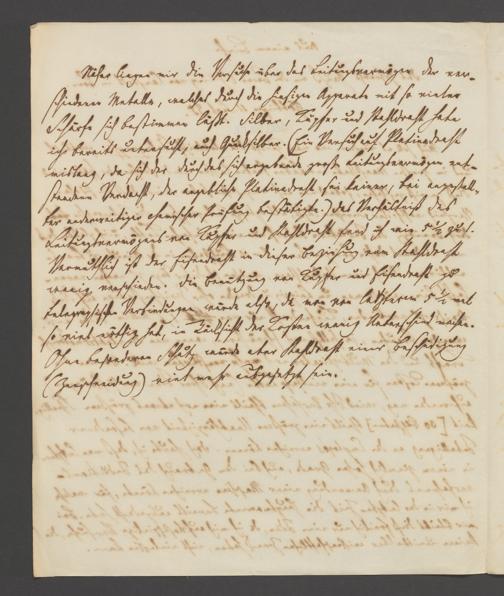 Näher liegen mir die Versuche über das Leitungsvermögen der ver-
schiedenen Metalle, welches durch die hiesigen Apparate mit so vieler
Schärfe sich bestimmen läßt. Silber, Kupfer und Stahldraht habe
ich bereits untersucht, auch Quecksilber. (Ein Versuch auf Platinadraht
mislang, da sich der durch das sich ergebende große Leitungsvermögen ent-
standene Verdacht, der angebliche Platinadraht sei keiner, bei angestell-
ter anderweitiger chemischer Prüfung bestätigte.) Das Verhältniß des
Leitungsvermögens von Kupfer und Stahldraht fand ich wie 5½ zu 1.
Vermuthlich ist der Eisendraht in dieser Beziehung vom Stahldraht
wenig verschieden. Die Benutzung von Kupfer und Eisendraht zu
telegraphischen Verbindungen würde also, da man von letzterem 5½ mal
so viel nöthig hat, in Rücksicht der Kosten wenig Unterschied machen.
Ohne besonderen Schutz würde aber Stahldraht einer Beschädigung
(Zerschneidung) viel mehr ausgesetzt sein.